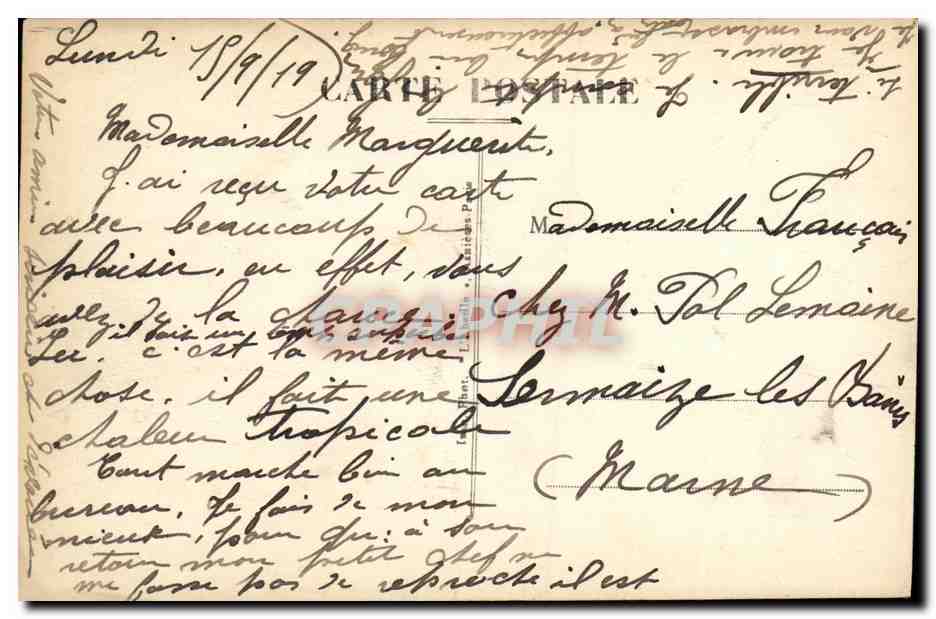 Lundi 15/9/19
CARTE POSTALE
Mademoiselle Marguerite,
J'ai reçu votre carte
avec beaucoup de
plaisir, en effet, vous
avez de la chance,
il fait un temps superbe
Ici. c'est la même
chose, il fait une
chaleur tropicale
Tout marche bien au
bureau, Je fais de mon
mieux, pour qu'à son
retour mon petit chef ne
me fasse pas de reproche il est
si terrible. Je
Je trouve le temps bien long
Je vous embrasse affectueusement
Votre amie
Mademoiselle Français
chez M. Pol Lemaine
Sermaize les Bains
(Marne)
GRAPHIL